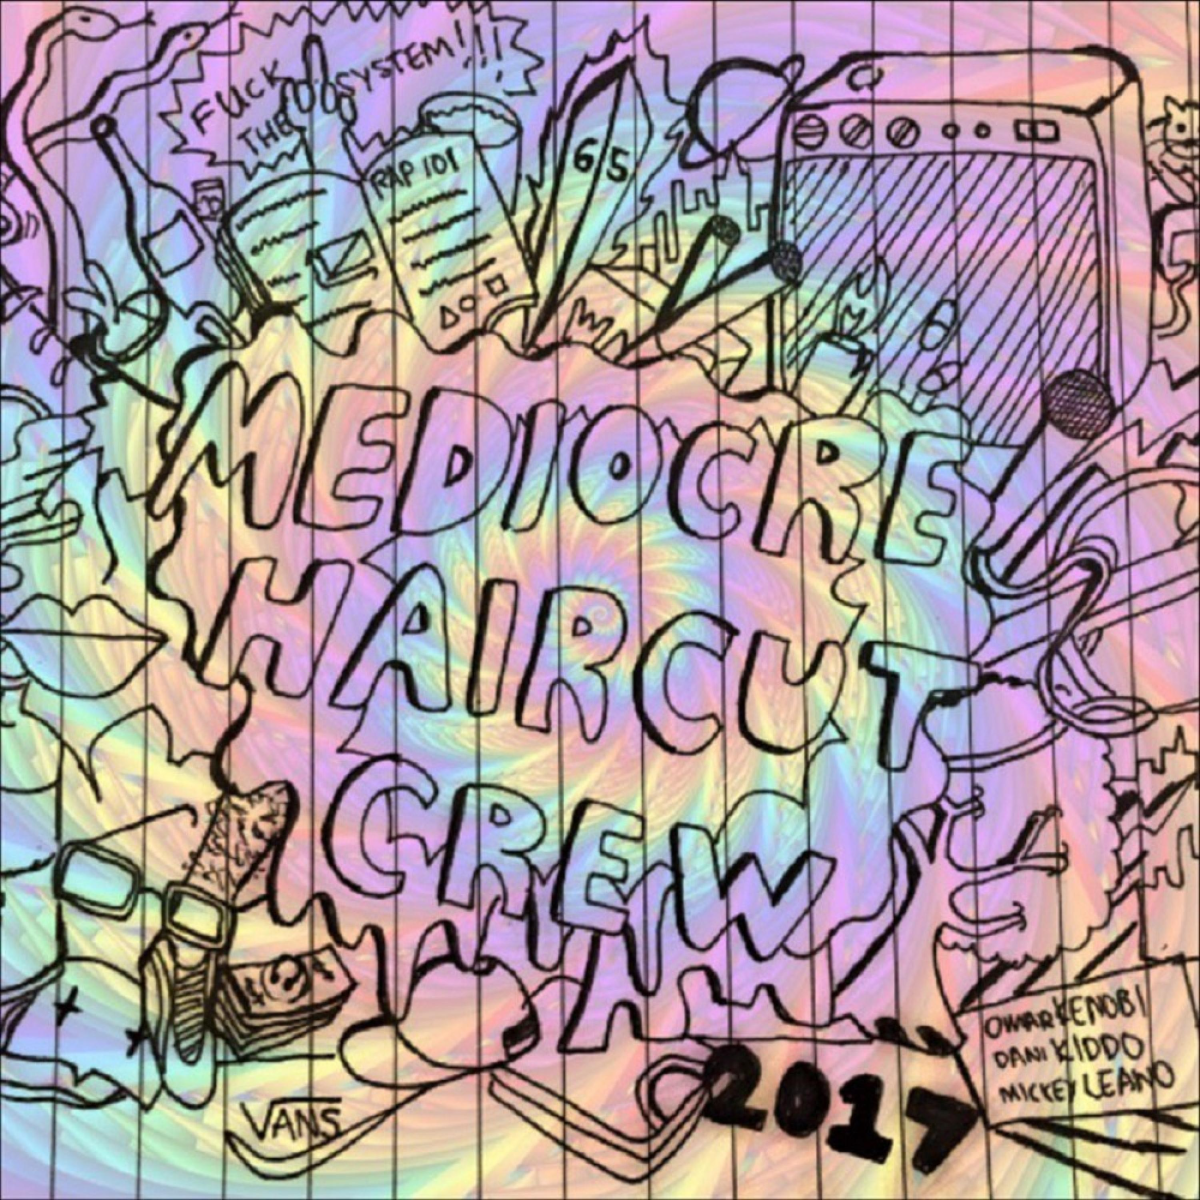 FUCK
THE
SYSTEM!!!
RAP 101
65
MEDIOCRE
HAIRCUT
CREW
2017
OMAR KENOBI
DANI KIDDO
MICKEY LEANO
VANS